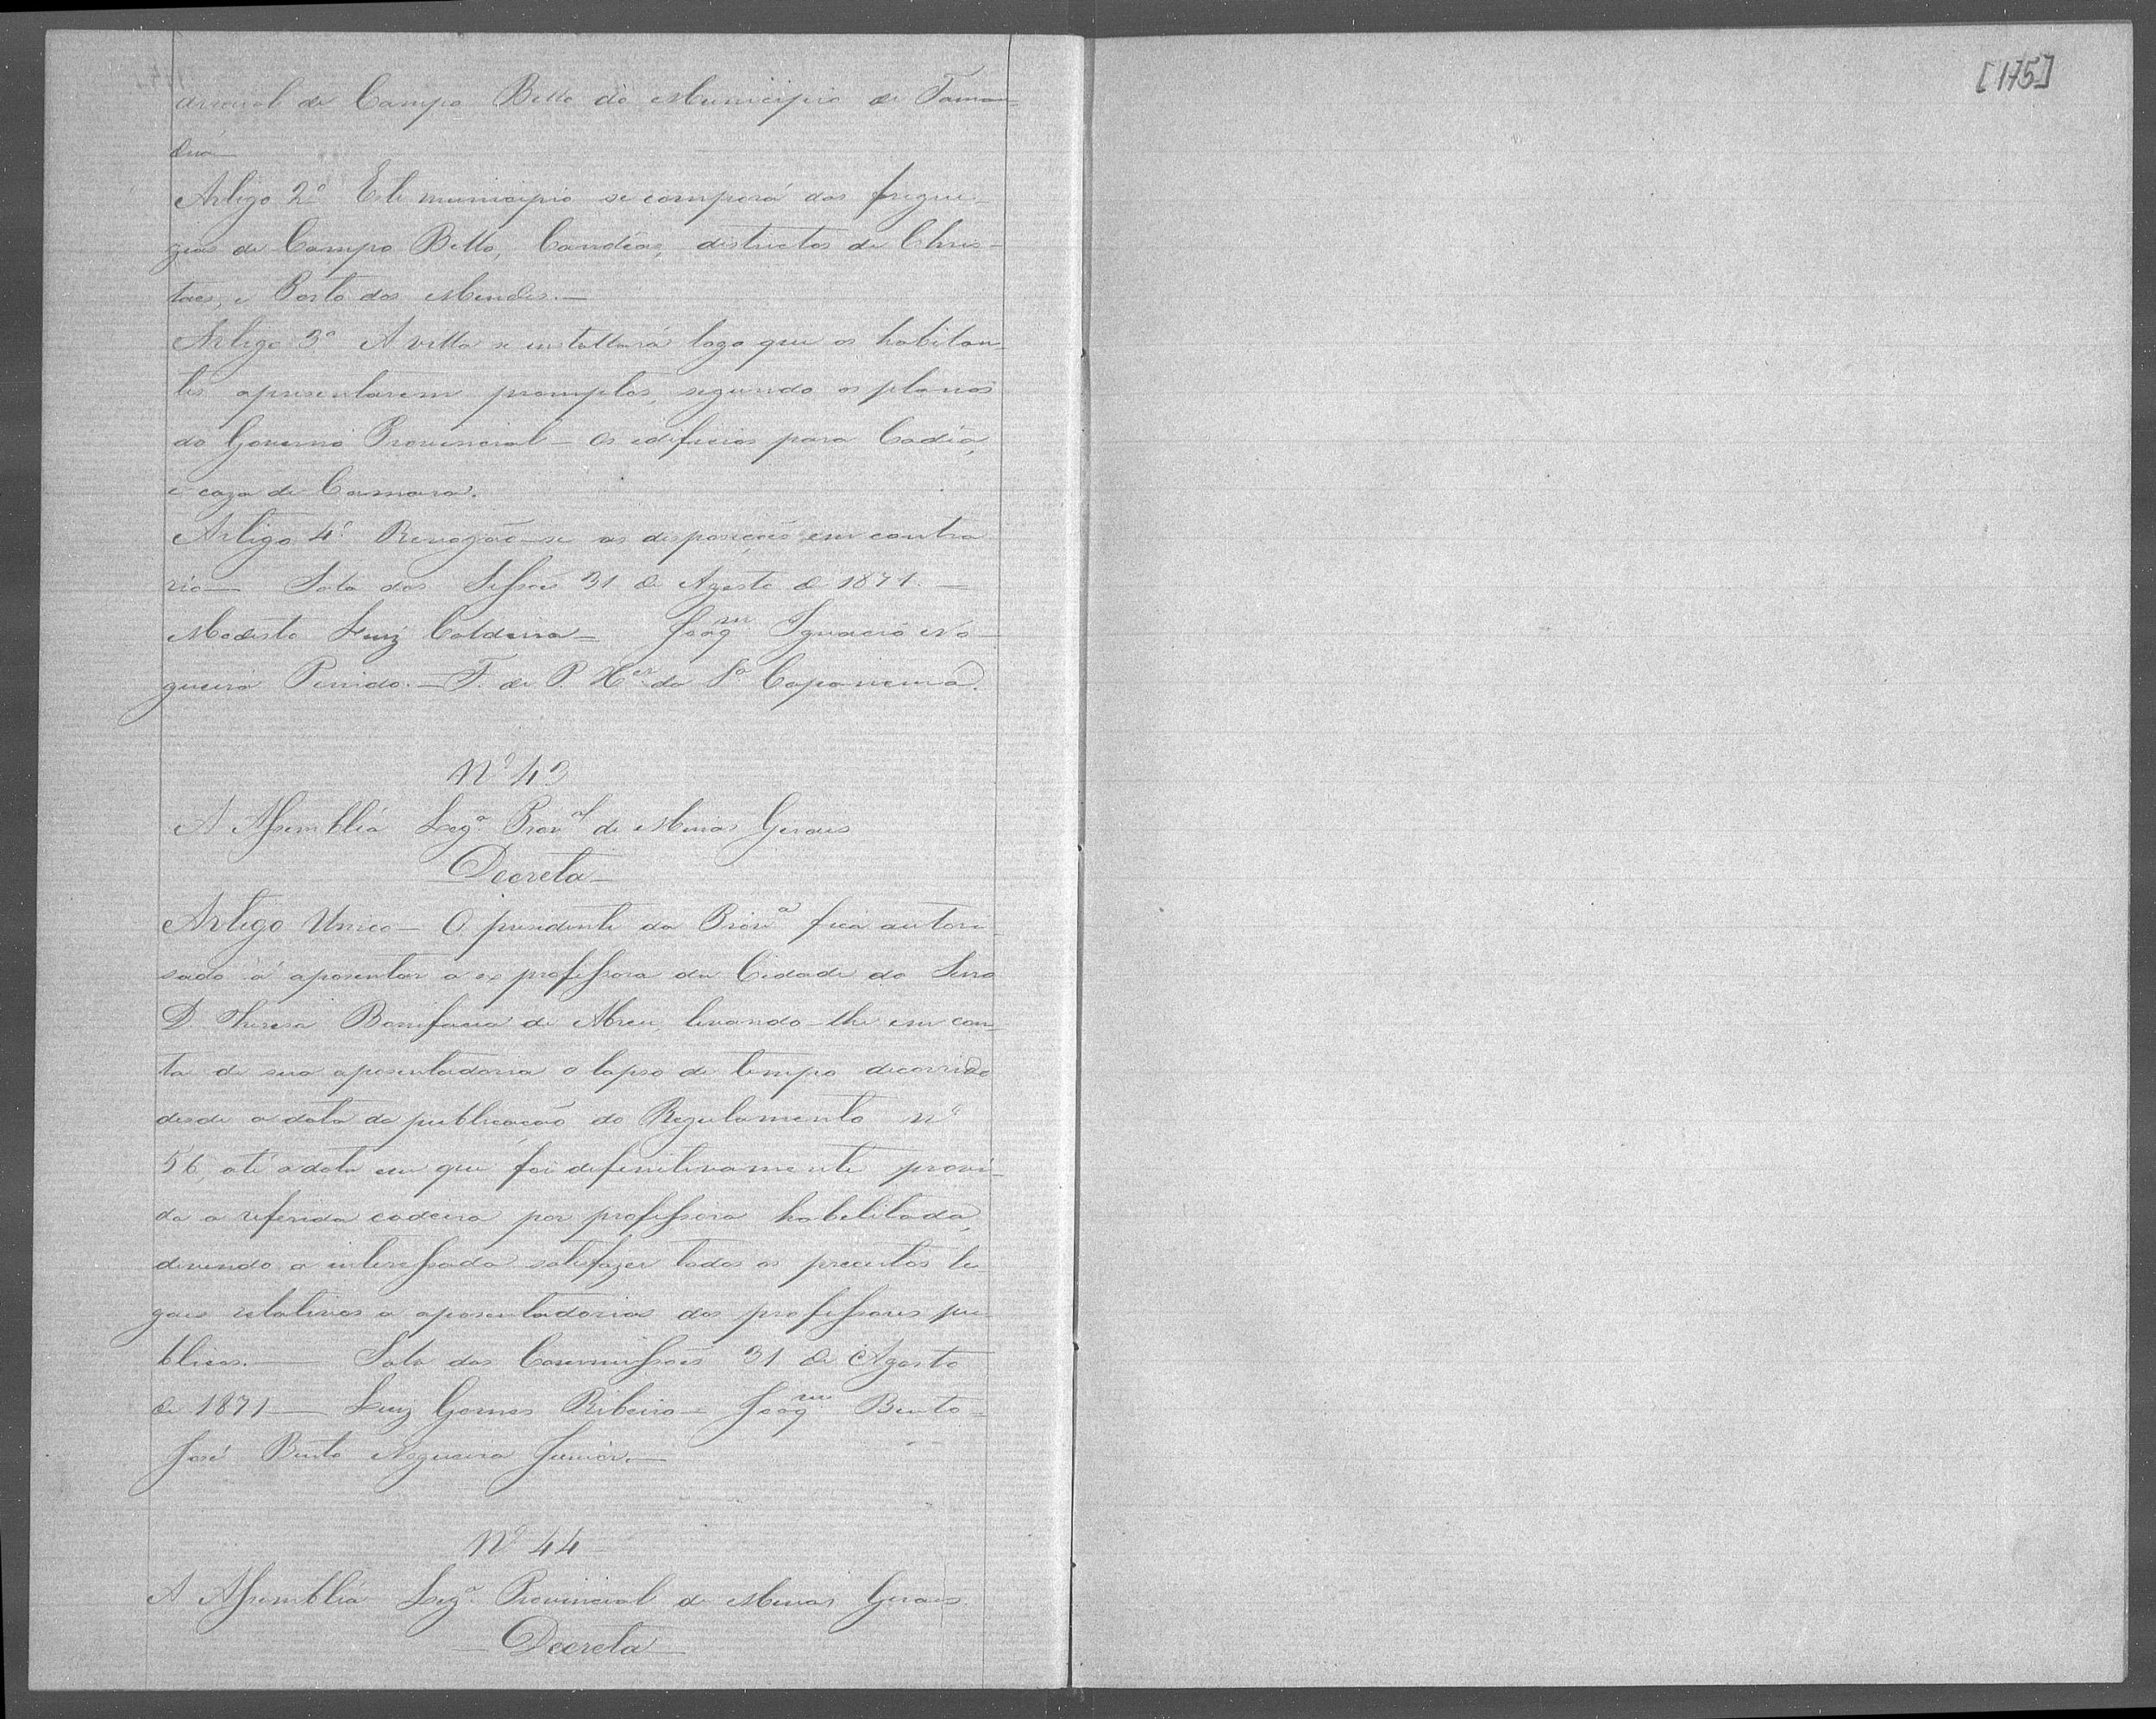 arraial de Campo Bello do Municipio de Taman-
duá
Artigo 2º Este municipio se comporá das fregue-
zias de Campo Bello, Candêas, districtos de Chris-
taes, e Porto dos Mendes.—
Artigo 3º A villa se installará logo que os habitan-
tes apresentarem promptos, segundo os planos
do Governo Provincial — os edificios para Cadêa,
e caza de Camara.
Artigo 4º Revogão-se as disposições em contra
rio— Sala das Sessões 31 de Agosto de 1871.—
Modesto Luiz Caldeira— Joaqm Ignacio No-
gueira Penido.— F. de P. Xer da Sa Capanema.
Nº 43
A Assembléa Lega Proval de Minas Geraes
Decreta—
Artigo Unico— O presidente da Prova fica autori-
sado á aposentar a ex professora da Cidade do Serro
D. Theresa Bonifacia de Abreu, levando-lhe em con-
ta de sua aposentadoria o lapso de tempo decorrido
desde a data da publicação do Regulamento nº
56, até a data em que foi definitivamente provi-
da a referida cadeira por professora habelitada,
devendo a interessada satisfazer todos os preceitos le
gaes relativos a aposentadoria dos professores pu-
blicos.— Sala das Commissões 31 de Agosto
de 1871— Luiz Gomes Ribeiro— Joaqm Bento—
José Bento Nogueira Junior.—
Nº 44
A Assembléa Lega Provincial de Minas Geraes.
—Decreta—
[175]